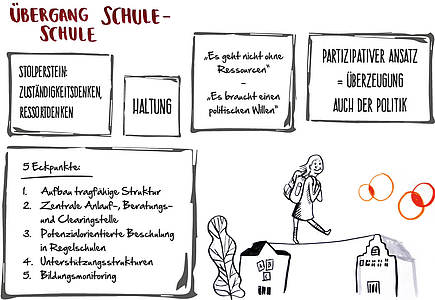 ÜBERGANG SCHULE-
SCHULE
STOLPERSTEIN:
ZUSTÄNDIGKEITSDENKEN,
RESSORTDENKEN
HALTUNG
„Es geht nicht ohne
Ressourcen“
–
„Es braucht einen
politischen Willen“
PARTIZIPATIVER ANSATZ
= ÜBERZEUGUNG
AUCH DER POLITIK
5 Eckpunkte:
1. Aufbau tragfähige Struktur
2. Zentrale Anlauf-, Beratungs-
und Clearingstelle
3. Potenzialorientierte Beschulung
in Regelschulen
4. Unterstützungsstrukturen
5. Bildungsmonitoring